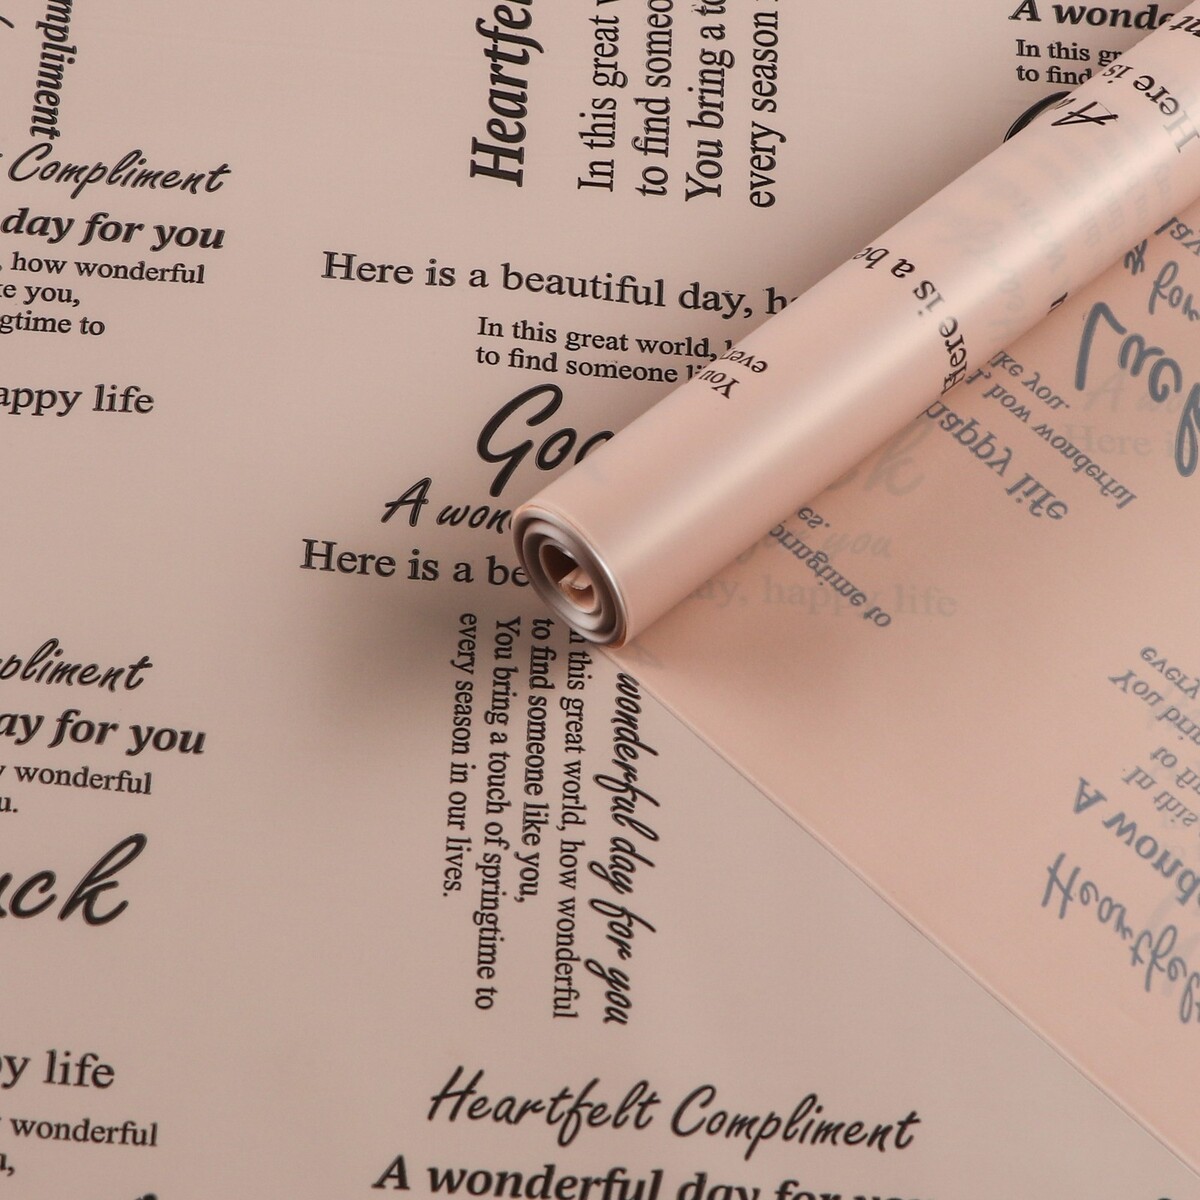 mpliment
Compliment
day for you
, how wonderful
ke you,
gtime to
appy life
Heartfel
In this great
to find someo
You bring a to
every season
A wonde
In this gr
to find
Here is a beautiful day, h
In this great world,
to find someone li
Goo
A won
Here is a be
Here is
A
Here is a be
You
ever
like you.
, how wonderful
happy life
springtime to
you
day, happy life
Here i
pliment
ay for you
wonderful
u.
uck
wonderful day for you
n this great world, how wonderful
to find someone like you,
You bring a touch of springtime to
every season in our lives.
every
You brin
to fi
In this
A wond
Heartfel
y life
wonderful
Heartfelt Compliment
A wonderful day for you